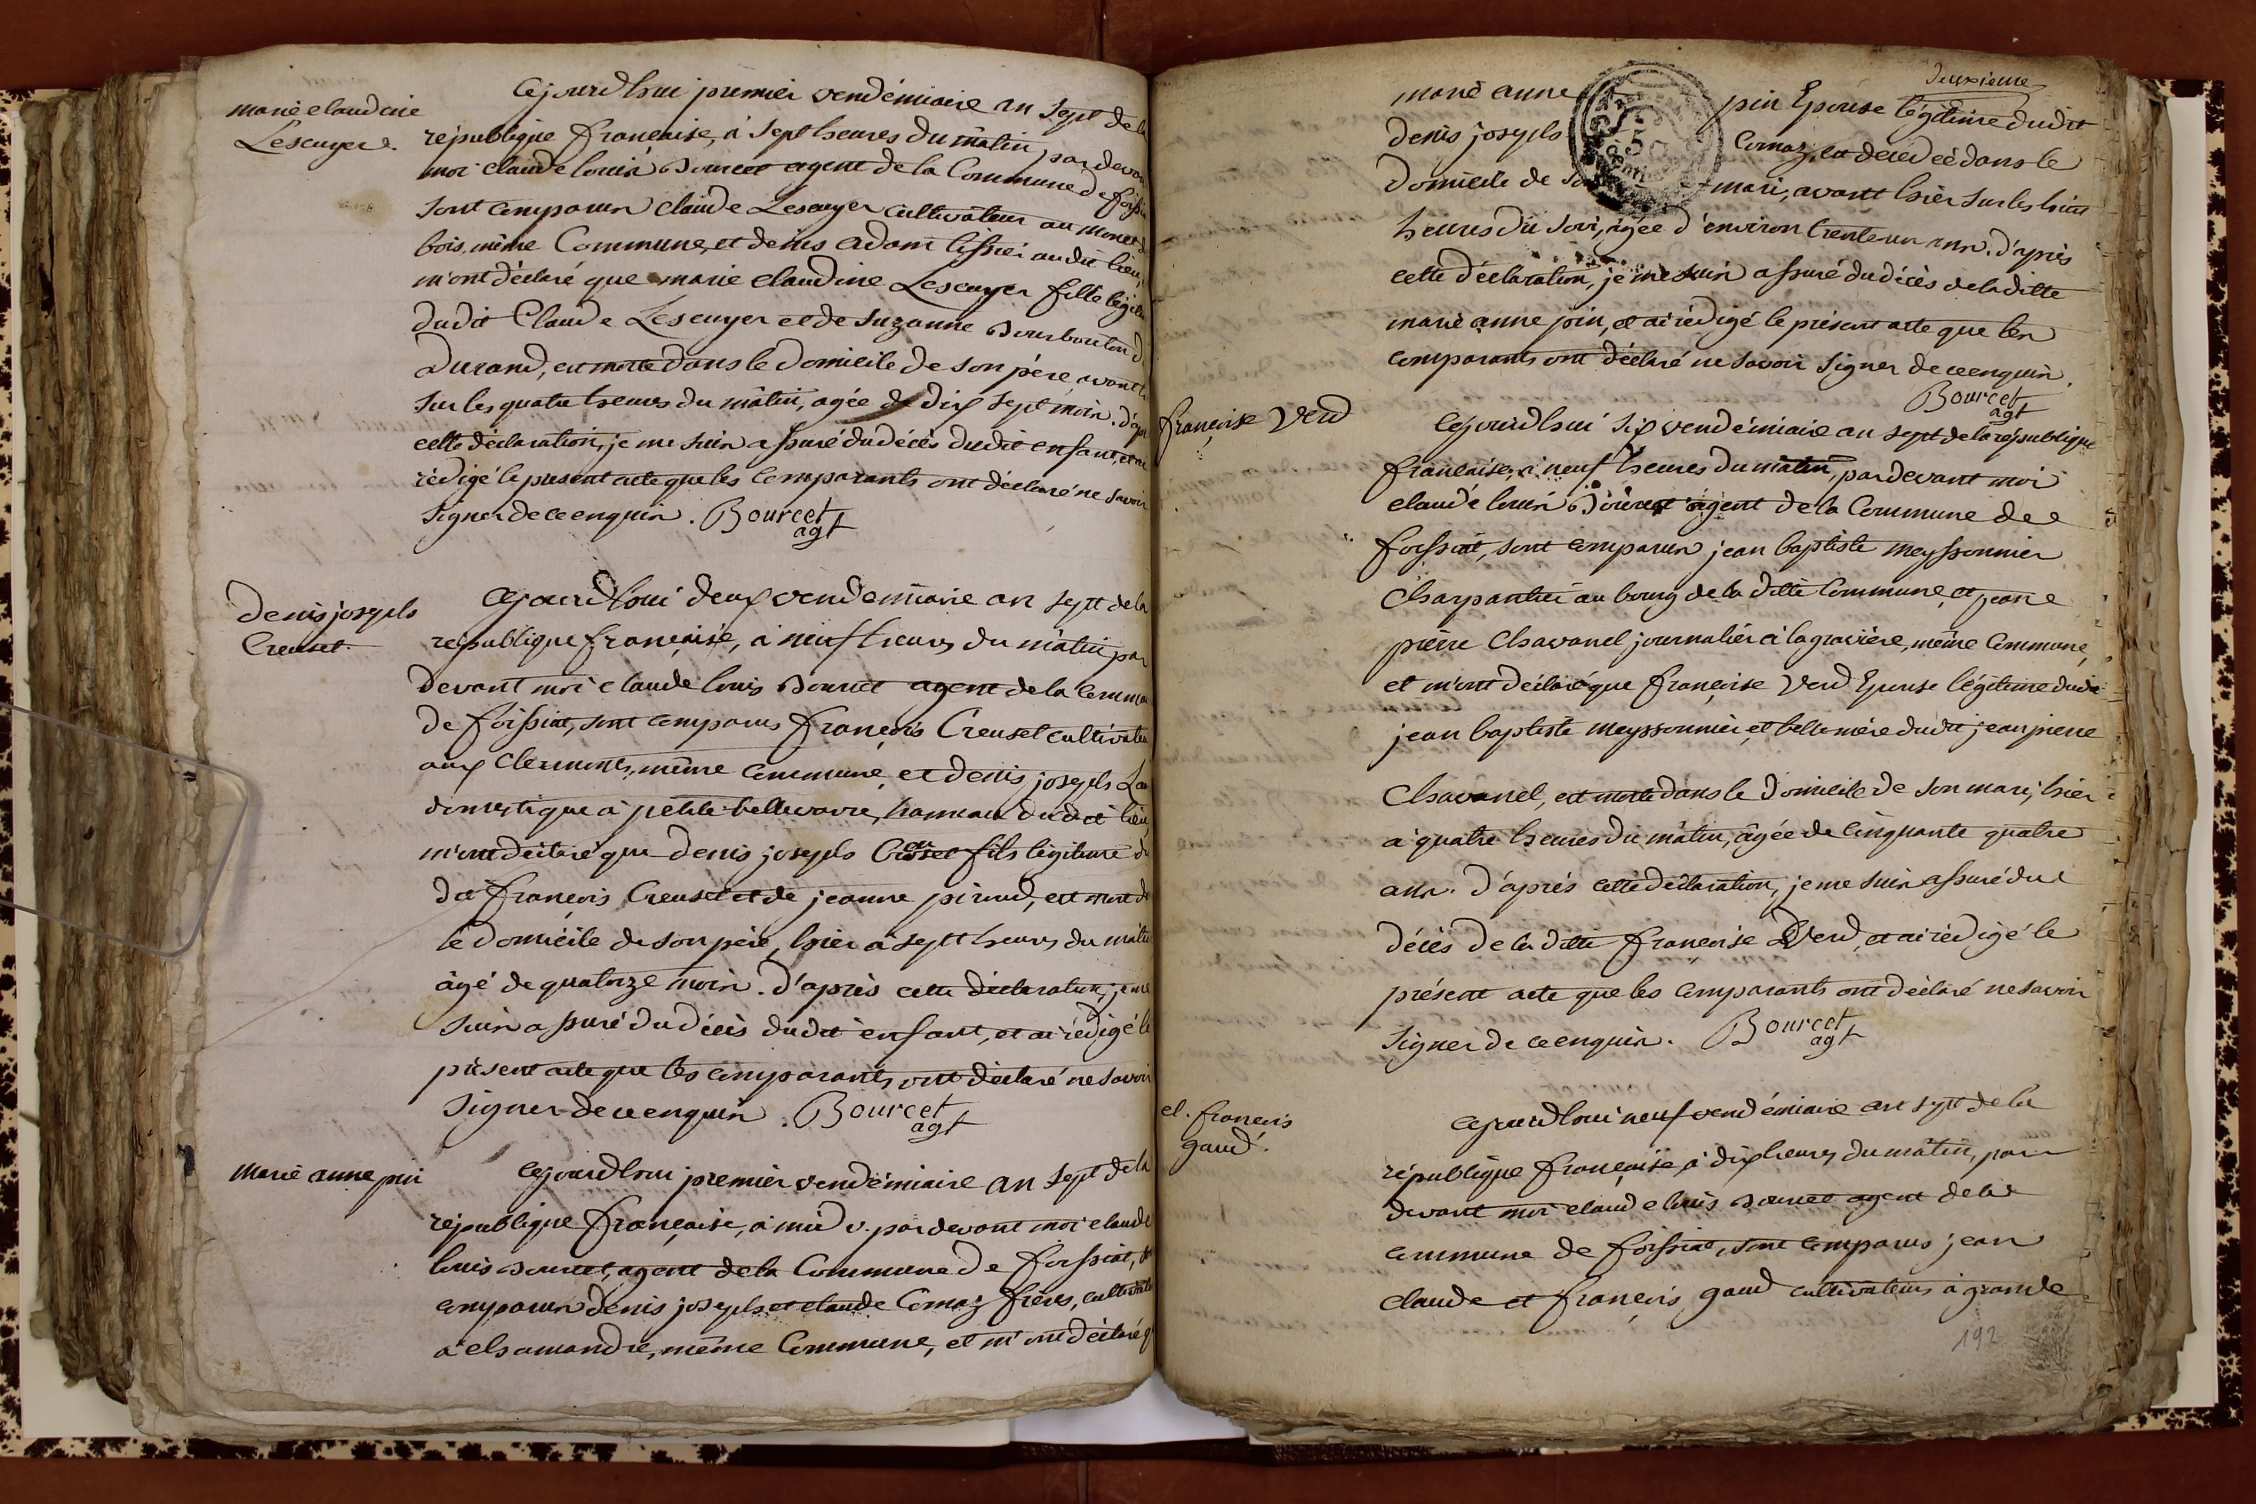 marie claudine
Lescuyer.
Cejourd'hui premier vendémiaire an sept de la
république française, à sept heures du mâtin par devan
moi claude louis Bourcet agent de la Commune de foissia
sont comparus claude Lescuyer cultivâteur au
bois, même Commune, et denis adam tissier audit lieu,
m'ont déclaré que marie claudine Lescuyer fille légiti
dudit Claude Lescuyer et de suzanne Bourbouton
durand, est morte dans le domicile de son père, avant
sur les quatre heures du mâtin, agée de dix sept mois. d'apr
cette déclaration, je me suis assuré du décès dudit enfant, et ai
rédigé le présent acte que les comparants ont déclaré ne savoir
signer de ce enquis. Bourcet
agt
denis joseph
Creuset.
Cejourd'hui deux vendémiaire an sept de la
république française, à neuf heures du mâtin, par
devant moi claude louis Bourcet agent de la commu
de foissiat, sont comparus françois Creuset cultivateu
aux Clermonts, même commune, et denis joseph
domestique à petite bellevavre, hameau dudit lieu,
m'ont déclaré que denis joseph Creuset fils légitime du
dit françois Creuset et de jeanne piroud, est mort da
le domicile de son père, hier à sept heures du mâtin
âgé de quatorze mois. d'après cette déclaration, je me
suis assuré du décès dudit enfant, et ai rédigé le
présent acte que les comparants ont déclaré ne savoir
signer de ce enquis. Bourcet
agt
marie anne pin
Cejourd'hui premier vendémiaire an sept de la
république française, à midi. par devant moi claude
louis Bourcet, agent de la Commune de foissiat,
comparus denis joseph et claude Comaz frères, cultivate
à chamandre, même Commune, et m'ont déclaré q
deuxieme
marie anne pin Epouse légitime dudit
denis joseph Comaz, est décédée dans le
domicile de mari, avant hier sur les huit
heures du soir, agée d'environ trente un ans. d'après
cette déclaration, je me suis assuré du décès de la ditte
marie anne pin, et ai rédigé le présent acte que les
comparants ont déclaré ne savoir signer de ce enquis.
Bourcet
agt
françoise Verd
Cejourd'hui six vendémiaire an sept de la république
française, à neuf heures du mâtin, par devant moi
claude louis Bourcet agent de la Commune de
foissiat, sont comparus jean baptiste meyssonnier
charpantier au bourg de la ditte Commune, et jean
pierre Chavanel journalier à la gravière, même Commune,
et m'ont déclaré que françoise Verd Epouse légitime dudit
jean baptiste meyssonnier, et belle mère dudit jean pierre
Chavanel, est morte dans le domicile de son mari, hier
à quatre heures du mâtin, âgée de cinquante quatre
ans. d'après cette déclaration, je me suis assuré du
décès de la ditte françoise Verd, et ai rédigé le
présent acte que les comparants ont déclaré ne savoir
signer de ce enquis. Bourcet
agt
cl. françois
gaud.
Cejourd'hui neuf vendémiaire an sept de la
république française, à dix heures du mâtin, par
devant moi claude louis Bourcet agent de la
commune de foissiat, sont comparus jean
claude et françois gaud cultivateurs à grande
192